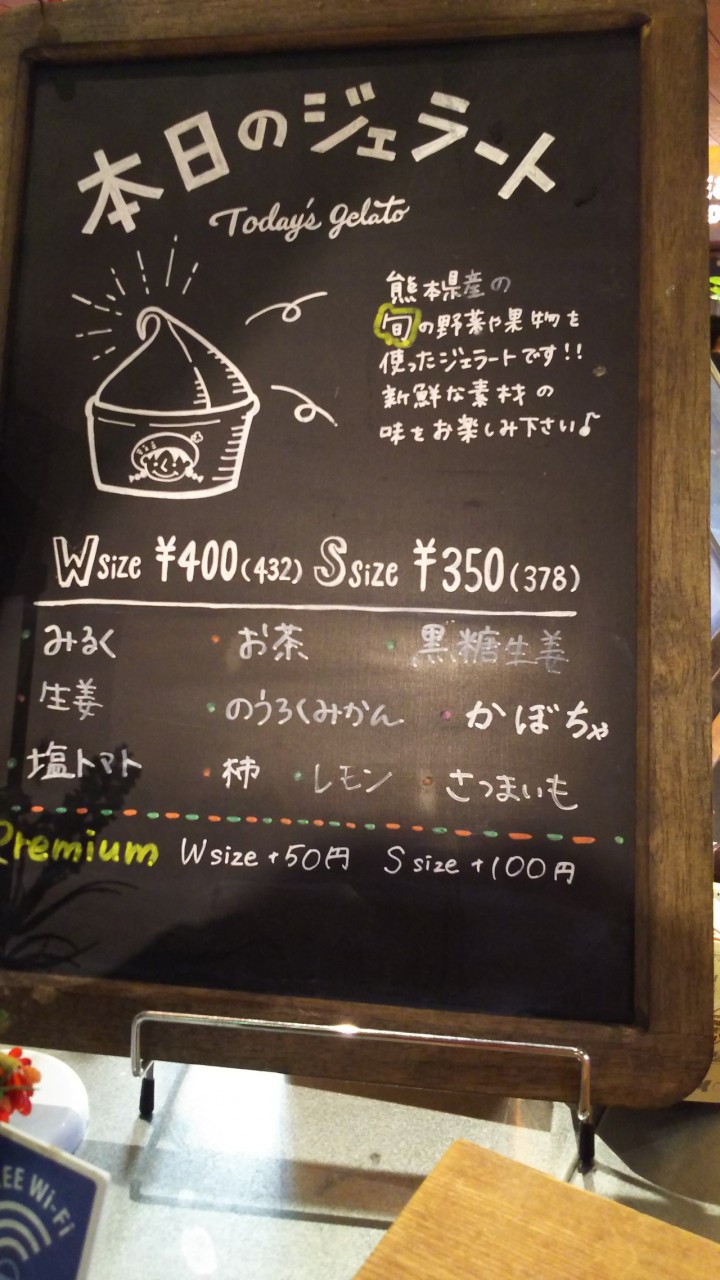 本日のジェラート
Today's gelato
熊本県産の
旬の野菜や果物を
使ったジェラートです!!
新鮮な素材の
味をお楽しみ下さい♪
W size ¥400(432) S size ¥350(378)
・みるく ・お茶 ・黒糖生姜
・生姜 ・のうろくみかん ・かぼちゃ
・塩トマト ・柿 ・レモン ・さつまいも
Premium W size +50円 S size +100円
Wi-Fi